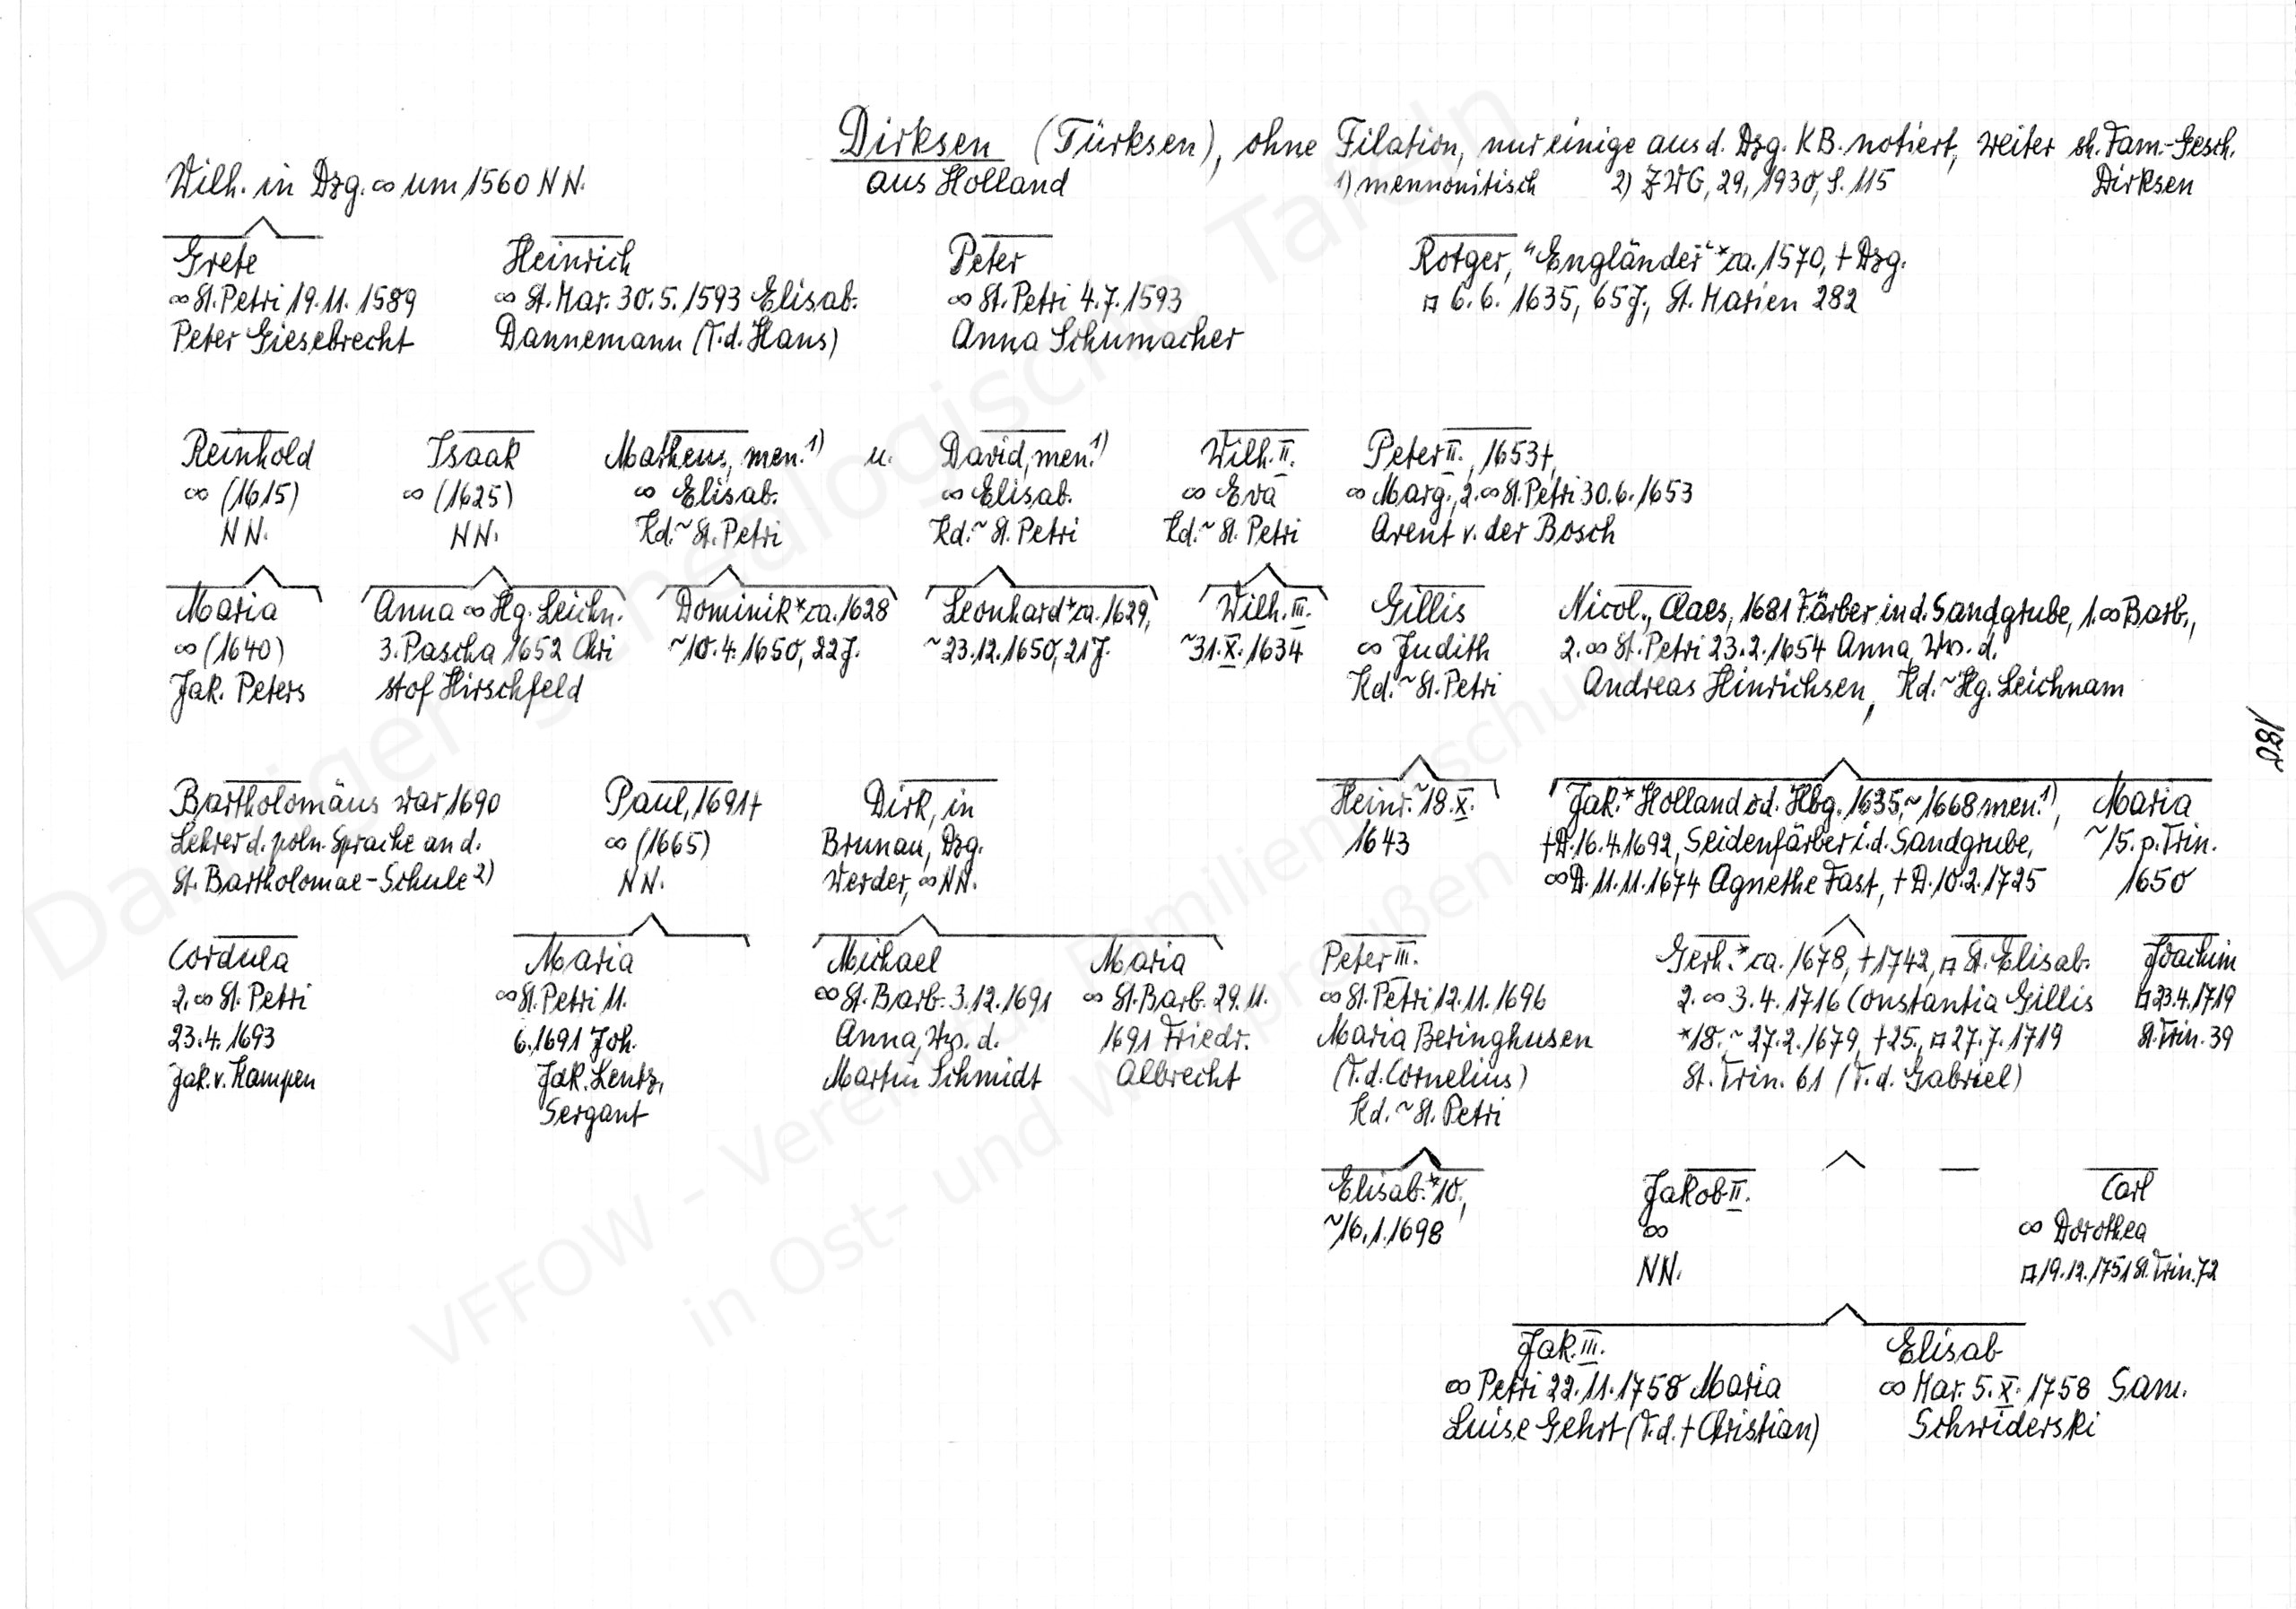 Dirksen (Türksen), ohne Filation, nur einige aus d. Dzg. KB. notiert, weiter sh. Fam.-Gesch.
Wilh. in Dzg. ∞ um 1560 NN.
aus Holland
1) mennonitisch 2) ZWG, 29, 1930, S. 115
Dirksen
Grete
∞ St. Petri 19.11.1589
Peter Giesebrecht
Heinrich
∞ St. Mar. 30.5.1593 Elisab.
Dannemann (T.d. Hans)
Peter
∞ St. Petri 4.7.1593
Anna Schumacher
Rotger, "Engländer" * ca. 1570, + Dzg.
⚰ 6.6.1635, 65J., St. Marien 282
Reinhold
∞ (1615)
NN.
Isaak
∞ (1625)
NN.
Matheus, men. 1) u.
∞ Elisab.
Kd. ~ St. Petri
David, men. 1)
∞ Elisab.
Kd. ~ St. Petri
Wilh. II.
∞ Eva
Kd. ~ St. Petri
Peter II., 1653+,
∞ Marg., 2. ∞ St. Petri 30.6.1653
Arent v. der Bosch
Maria
∞ (1640)
Jak. Peters
Anna ∞ Hg. Leichn.
3. Pascha 1652 Chri
stof Hirschfeld
Dominik * ca. 1628
~ 10.4.1650, 22J.
Leonhard * ca. 1629,
~ 23.12.1650, 21J.
Wilh. III.
~ 31.X.1634
Gillis
∞ Judith
Kd. ~ St. Petri
Nicol., Claes, 1681 Färber in d. Sandgrube, 1. ∞ Barb.,
2. ∞ St. Petri 23.2.1654 Anna, Ww. d.
Andreas Hinrichsen, Kd. ~ Hg. Leichnam
180
Bartholomäus war 1690
Lehrer d. poln. Sprache an d.
St. Bartholomae-Schule 2)
Paul, 1691+
∞ (1665)
NN.
Dirk, in
Brunau, Dzg.
Werder, ∞ NN.
Heinr. ~ 18.X.
1643
Jak. * Holland od. Hbg. 1635, ~ 1668 men. 1),
+ D. 16.4.1692, Seidenfärber i. d. Sandgrube,
∞ D. 11.11.1674 Agnethe Fast, + D. 10.2.1725
Maria
~ 15. p. Trin.
1650
Cordula
2. ∞ St. Petri
23.4.1693
Jak. v. Kampen
Maria
∞ St. Petri 11.
6.1691 Joh.
Jak. Lentz,
Sergant
Michael
∞ St. Barb. 3.12.1691
Anna, Ww. d.
Martin Schmidt
Maria
∞ St. Barb. 29.11.
1691 Friedr.
Albrecht
Peter III.
∞ St. Petri 12.11.1696
Maria Beringhusen
(T.d. Cornelius)
Kd. ~ St. Petri
Gerh. * ca. 1678, + 1742, ⚰ St. Elisab.
2. ∞ 3.4.1716 Constantia Gillis
* 18., ~ 27.2.1679, + 25., ⚰ 27.7.1719
St. Trin. 61 (T. d. Gabriel)
Joachim
⚰ 23.4.1719
St. Trin. 39
Elisab. * 10.,
~ 16.1.1698
Jakob II.
∞
NN.
Carl
∞ Dorothea
⚰ 19.12.1751 St. Trin. 72
Jak. III.
∞ Petri 22.11.1758 Maria
Luise Gehrt (T.d. + Christian)
Elisab
∞ Mar. 5.X.1758 Sam.
Schwiderski
Danziger genealogische Tafeln
VFFOW - Verein für Familienforschung
in Ost- und Westpreußen